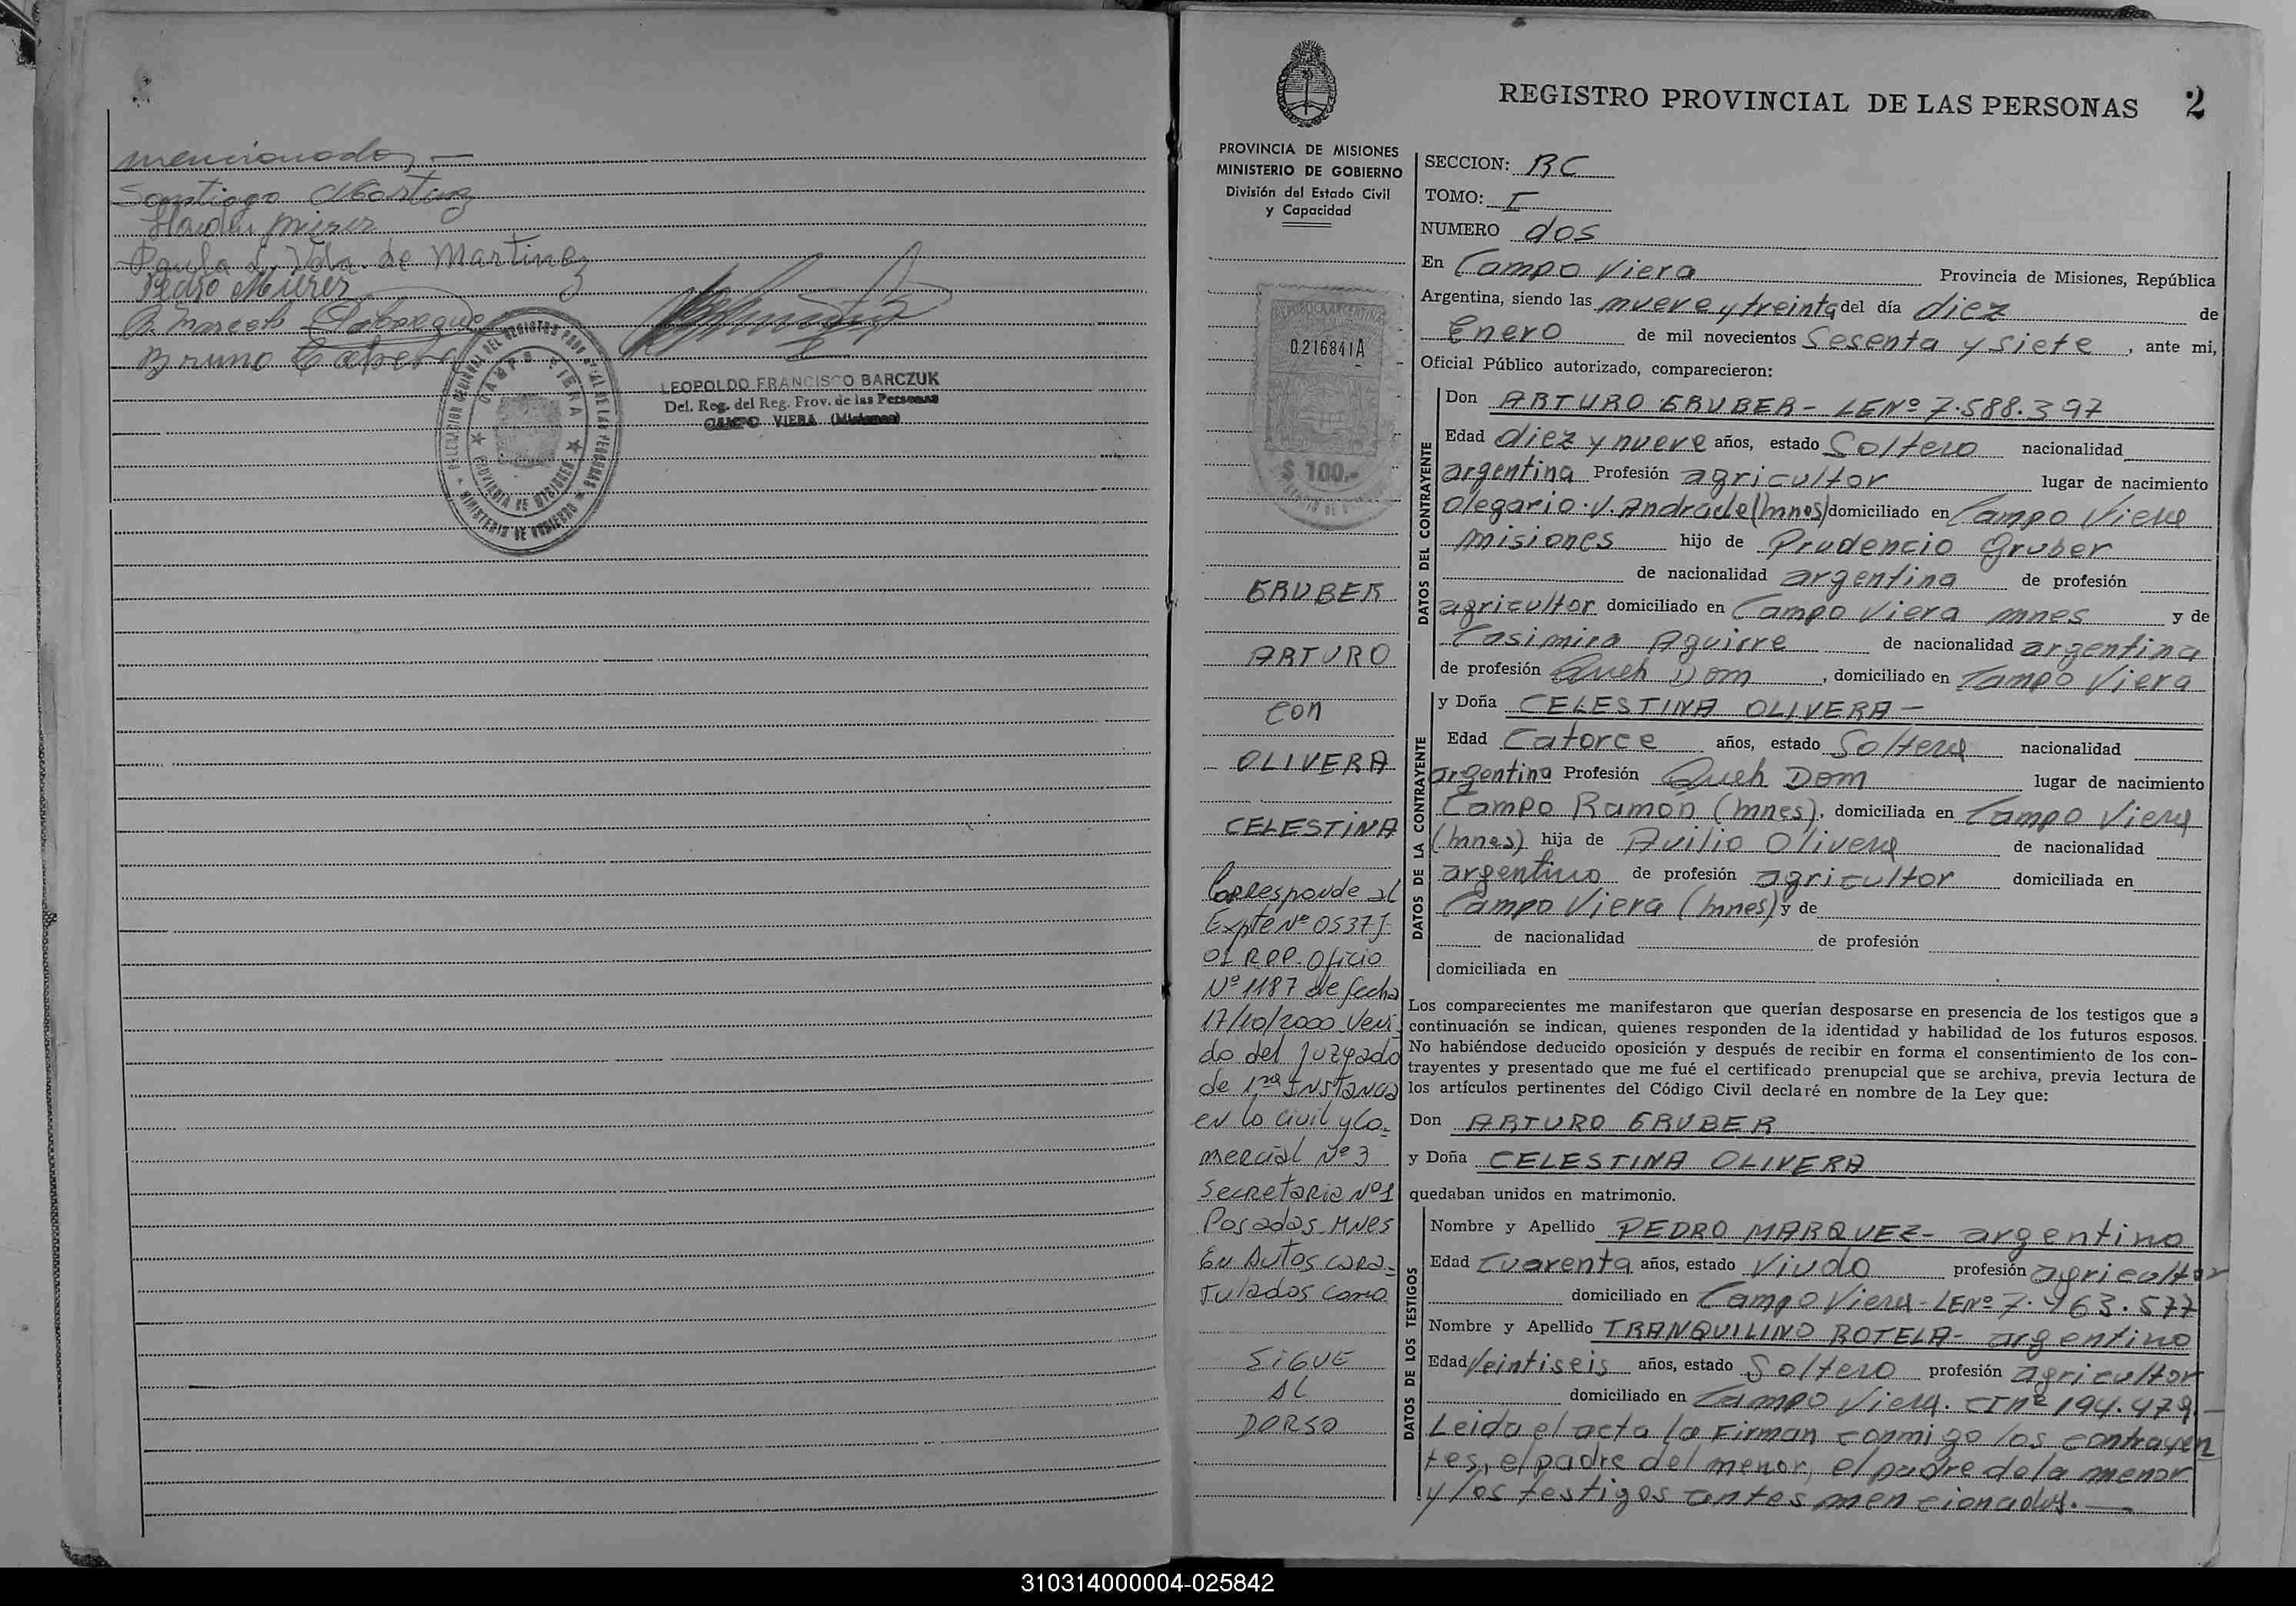 mencionados.—
Santiago Martinez
Haidu Mierez
Paula L. Vda. de Martinez
Pedro Mierez
B. Marcelo
Bruno Cabrera
DELEGACION REGIONAL DEL REGISTRO PROVINCIAL DE LAS PERSONAS
CAMPO VIERA
PROVINCIA DE MISIONES
MINISTERIO DE GOBIERNO
LEOPOLDO FRANCISCO BARCZUK
Del. Reg. del Reg. Prov. de las Personas
CAMPO VIERA (Misiones)
REGISTRO PROVINCIAL DE LAS PERSONAS 2
PROVINCIA DE MISIONES
MINISTERIO DE GOBIERNO
División del Estado Civil
y Capacidad
REPUBLICA ARGENTINA
0216841A
$ 100.-
GRUBER
ARTURO
con
OLIVERA
CELESTINA
Corresponde al
Expte Nº 0537J-
01 RPP. Oficio
Nº 1187 de fecha
17/10/2000 Veni-
do del Juzgado
de 1ra INSTANCIA
en lo civil y Co-
mercial Nº 3
Secretaria Nº 1
Posadas Mnes
En Autos cara-
tulados como
SIGUE
AL
DORSO
SECCION: RC
TOMO: I
NUMERO dos
En Campo Viera Provincia de Misiones, República
Argentina, siendo las nueve y treinta del día diez de
Enero de mil novecientos Sesenta y siete, ante mi,
Oficial Público autorizado, comparecieron:
DATOS DEL CONTRAYENTE
Don ARTURO GRUBER- LENº 7.588.397
Edad diez y nueve años, estado Soltero nacionalidad
argentina Profesión agricultor lugar de nacimiento
Olegario.V.Andrade(mnes) domiciliado en Campo Viera
Misiones hijo de Prudencio Gruber
de nacionalidad argentina de profesión
agricultor domiciliado en Campo Viera mnes y de
Casimira Aguirre de nacionalidad argentina
de profesión Queh Dom, domiciliado en Campo Viera
DATOS DE LA CONTRAYENTE
y Doña CELESTINA OLIVERA-
Edad Catorce años, estado Soltera nacionalidad
argentina Profesión Queh Dom lugar de nacimiento
Campo Ramón (mnes), domiciliada en Campo Viera
(mnes) hija de Avilio Olivera de nacionalidad
argentino de profesión agricultor domiciliada en
Campo Viera (mnes) y de
de nacionalidad de profesión
domiciliada en
Los comparecientes me manifestaron que querían desposarse en presencia de los testigos que a
continuación se indican, quienes responden de la identidad y habilidad de los futuros esposos.
No habiéndose deducido oposición y después de recibir en forma el consentimiento de los con-
trayentes y presentado que me fué el certificado prenupcial que se archiva, previa lectura de
los artículos pertinentes del Código Civil declaré en nombre de la Ley que:
Don ARTURO GRUBER
y Doña CELESTINA OLIVERA
quedaban unidos en matrimonio.
DATOS DE LOS TESTIGOS
Nombre y Apellido PEDRO MARQUEZ- argentino
Edad Cuarenta años, estado Viudo profesión agricultor
domiciliado en Campo Viera- LENº 7.463.577
Nombre y Apellido TRANQUILINO ROTELA- argentino
Edad Veintiseis años, estado Soltero profesión agricultor
domiciliado en Campo Viera. CInº 194.479.—
Leida el acta la Firman conmigo los contrayen
tes, el padre del menor, el padre de la menor
y los testigos antes mencionados.—
310314000004-025842